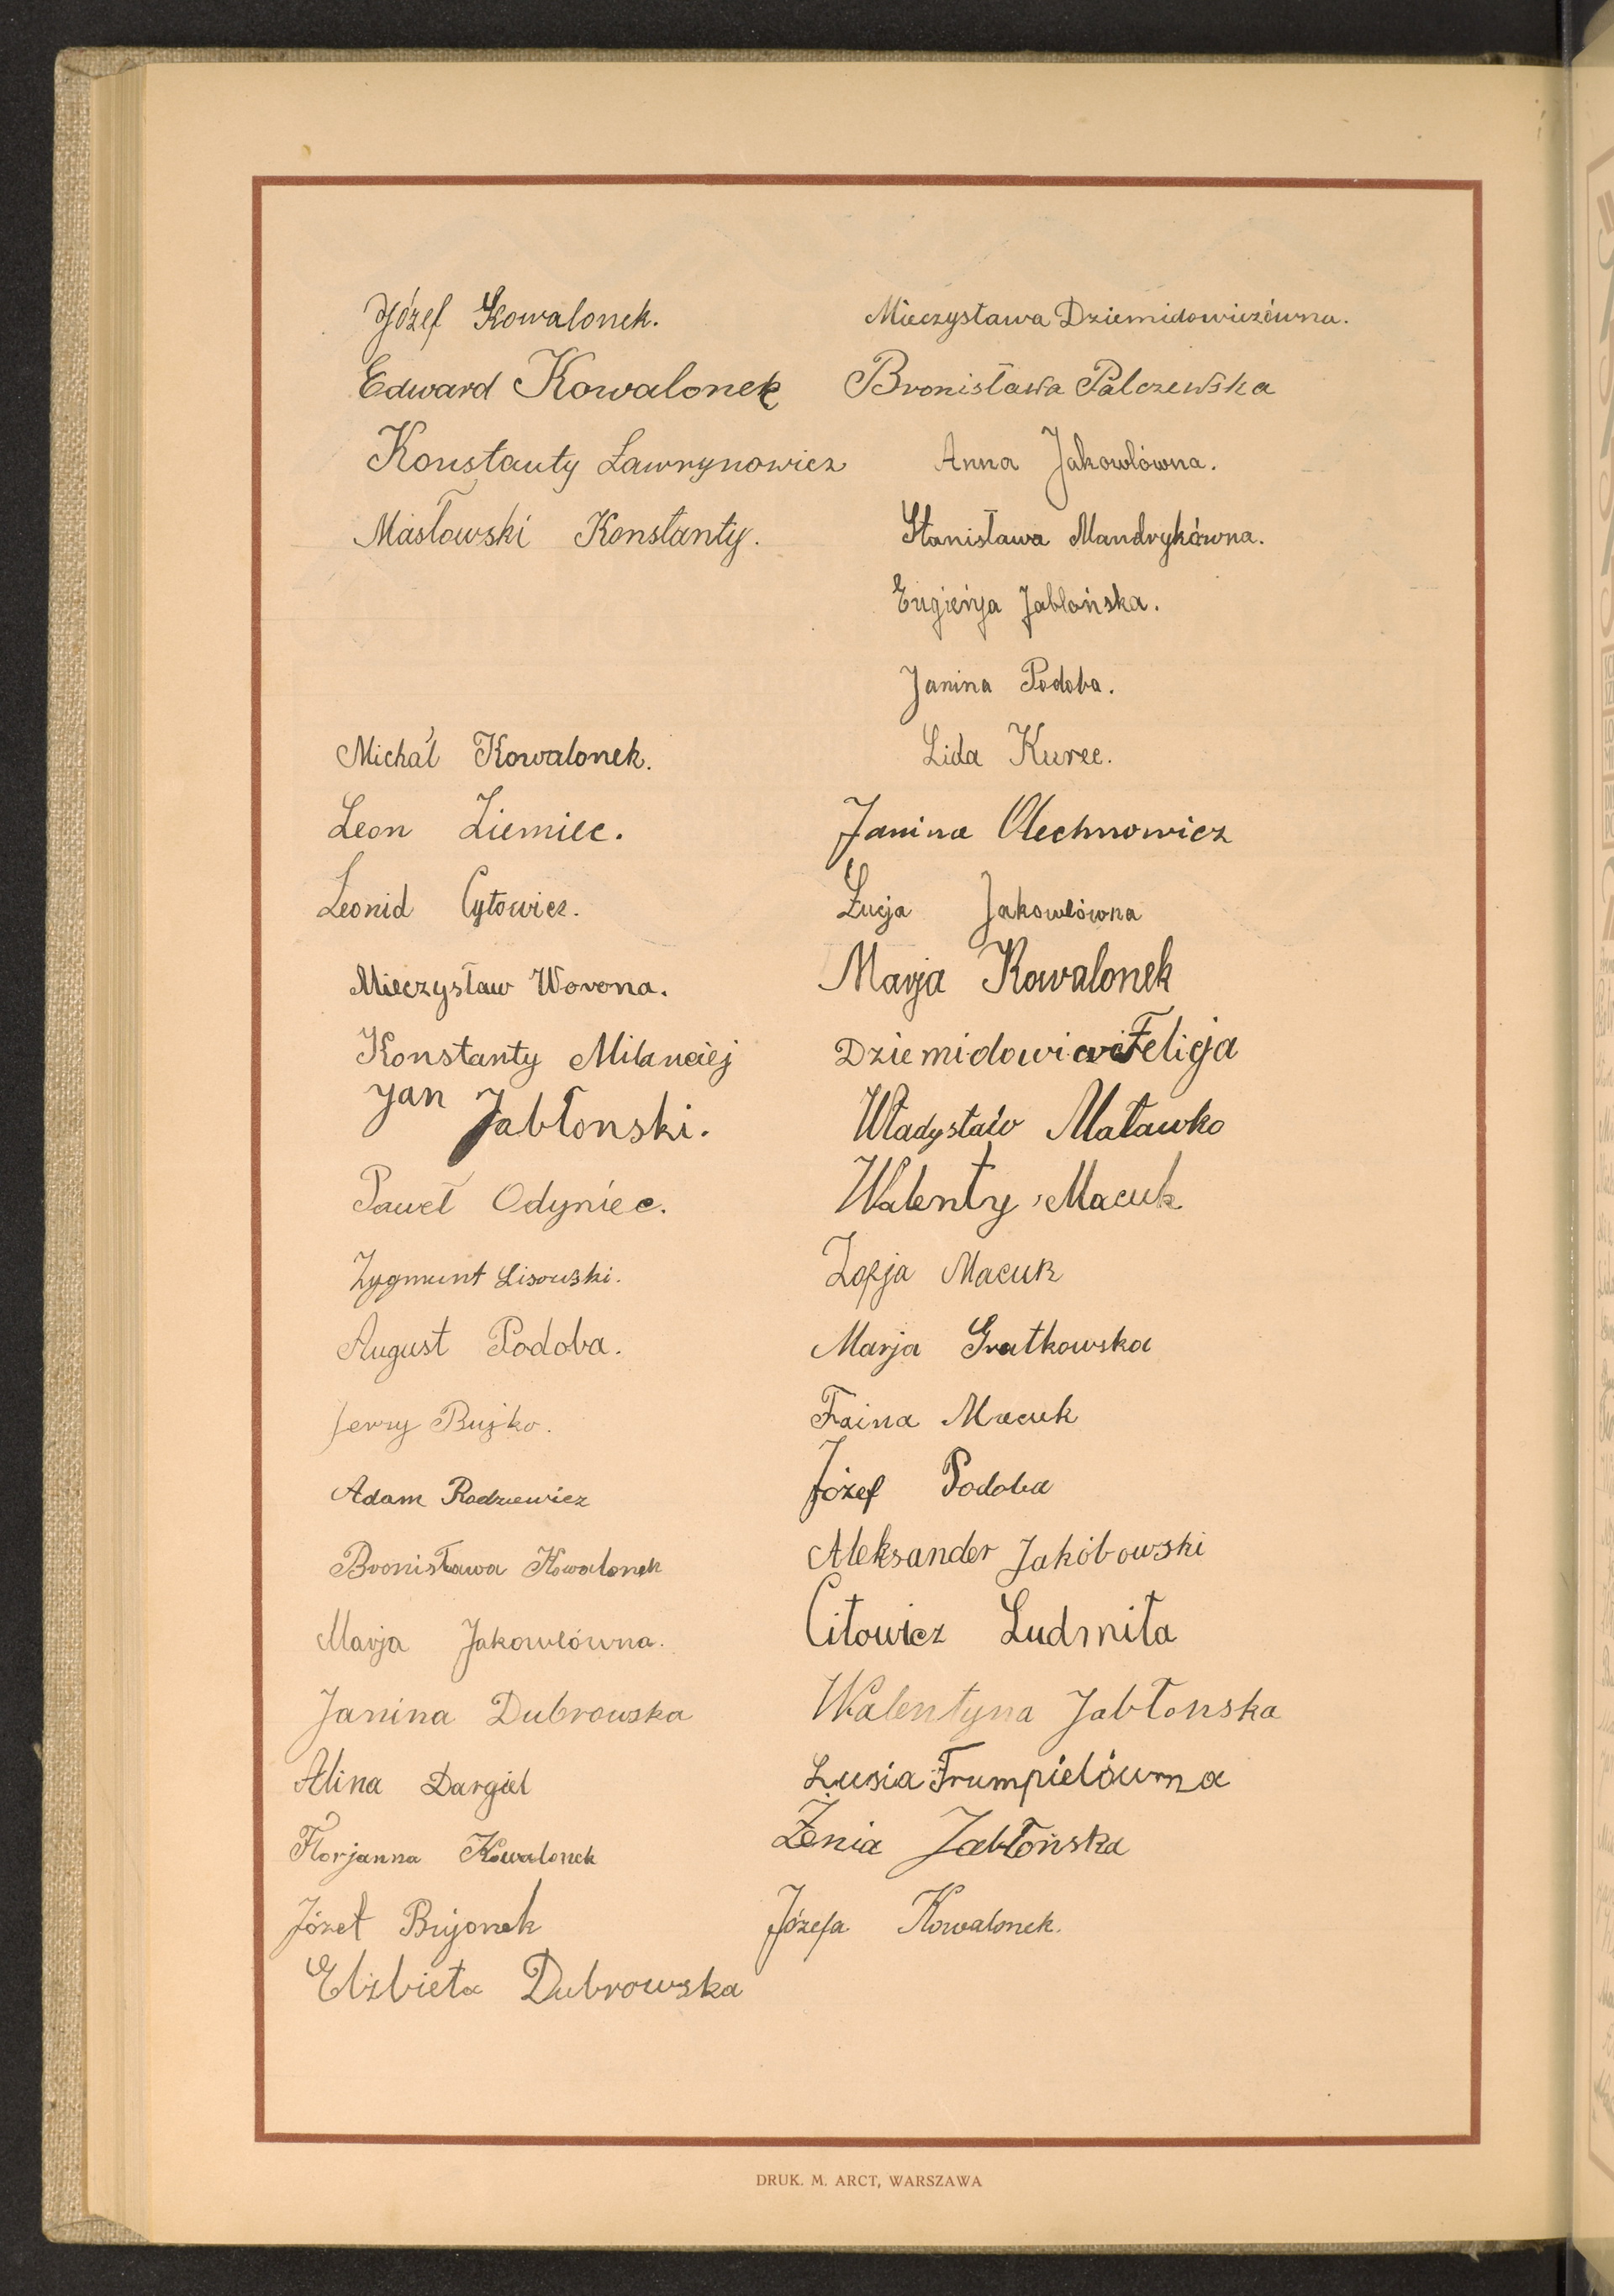 Józef Kowalonek.
Edward Kowalonek
Konstanty Ławrynowicz
Masłowski Konstanty.
Michał Kowalonek.
Leon Ziemiec.
Leonid Cytowicz.
Mieczysław Worona.
Konstanty Milanciej
Jan Jabłonski.
Paweł Odyniec.
Zygmunt Lisowski.
August Podoba.
Jerzy Bujko.
Adam Rodziewicz
Bronisława Kowalonek
Marja Jakowlówna.
Janina Dubrowska
Alina Dargiel
Florjanna Kowalonek
Józef Bujonek
Elżbieta Dubrowska
Mieczysława Dziemidowiczówna.
Bronisława Palczewska
Anna Jakowlówna.
Stanisława Mandrykówna.
Eugienja Jabłońska.
Janina Podoba.
Lida Kurec.
Janina Olechnowicz
Łucja Jakowlówna
Marja Kowalonek
Felicja
Władysław Maławko
Walenty Macuk
Zofja Macuk
Marja Gratkowska
Faina Macuk
Józef Podoba
Aleksander Jakóbowski
Citowicz Ludmiła
Walentyna Jabłonska
Lusia Trumpielówna
Żenia Jabłońska
Józefa Kowalonek.
DRUK. M. ARCT, WARSZAWA